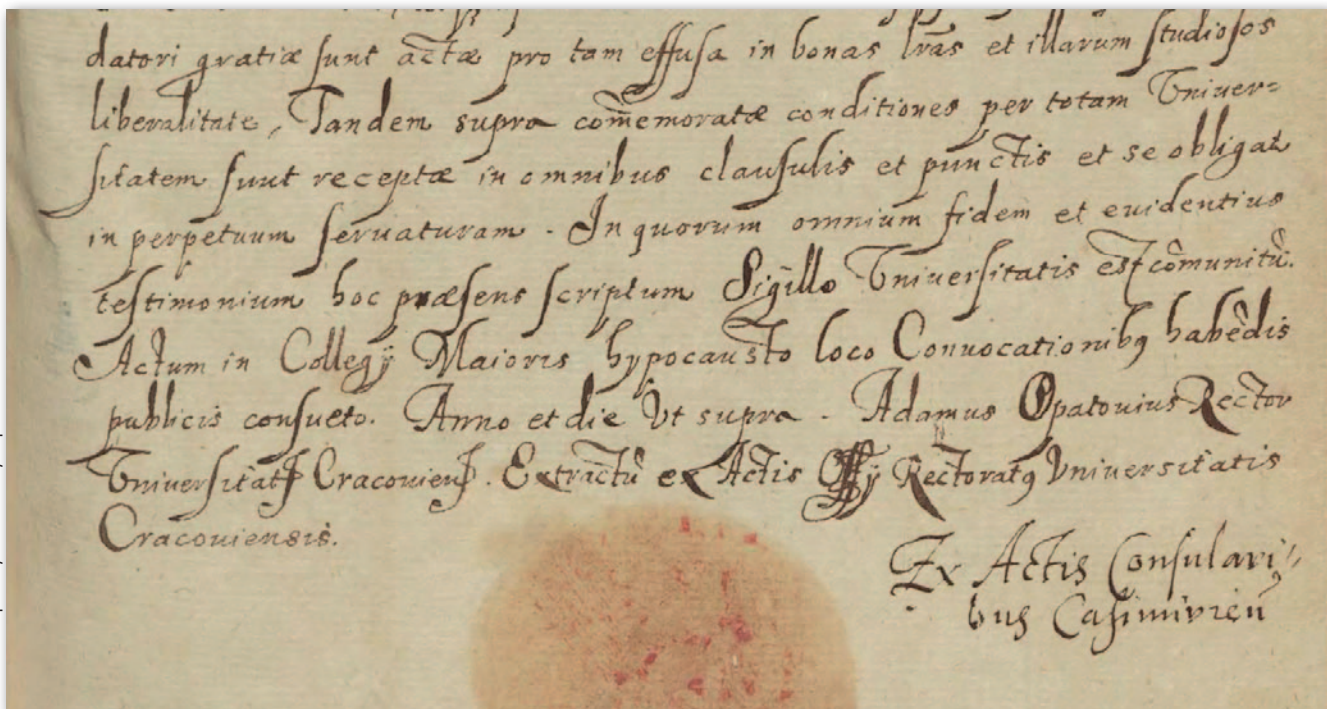 datori gratiæ sunt actæ pro tam effusa in bonas lr̃as et illarum studiosos
liberalitate, Tandem supra com̃emoratæ conditiones per totam Univer=
sitatem sunt receptæ in omnibus clausulis et punctis et se obligat
in perpetuum servaturam. In quorum omnium fidem et euidentius
testimonium hoc præsens scriptum Sigillo Universitatis est cõmunitũ.
Actum in Collegij Maioris hypocausto loco Convocationibꝯ habẽdis
publicis consueto. Anno et die Vt supra. Adamus Opatouius Rector
Universitatꝭ Cracouienꝭ. Extractũ ex Actis Offij Rectoratꝯ Vniversitatis
Cracouiensis.
Ex Actis Consulari=
bus Casimirień